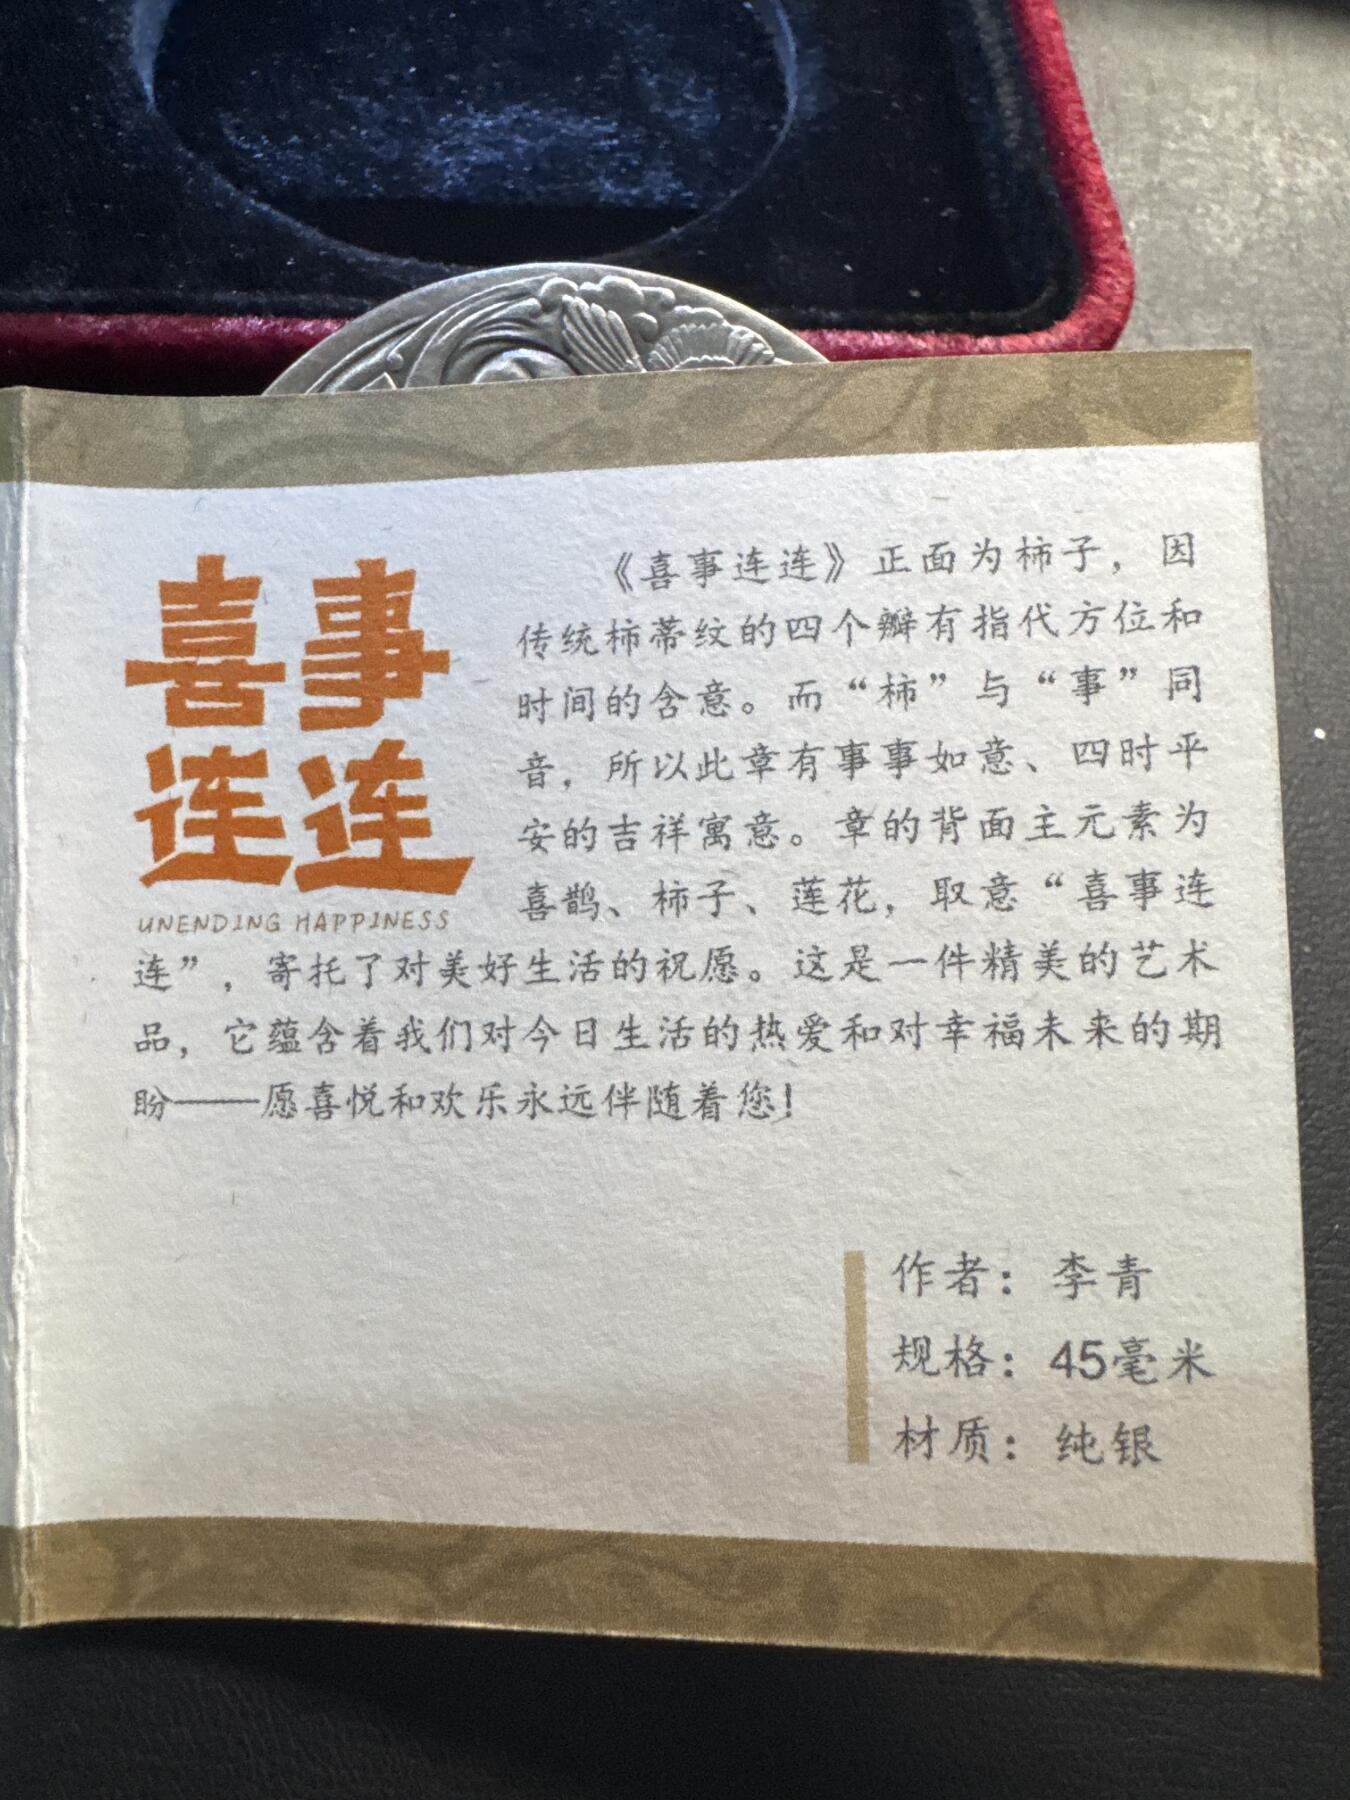 喜事
连连
UNENDING HAPPINESS
《喜事连连》正面为柿子，因
传统柿蒂纹的四个瓣有指代方位和
时间的含意。而“柿”与“事”同
音，所以此章有事事如意、四时平
安的吉祥寓意。章的背面主元素为
喜鹊、柿子、莲花，取意“喜事连
连”，寄托了对美好生活的祝愿。这是一件精美的艺术
品，它蕴含着我们对今日生活的热爱和对幸福未来的期
盼——愿喜悦和欢乐永远伴随着您！
作者：李青
规格：45毫米
材质：纯银